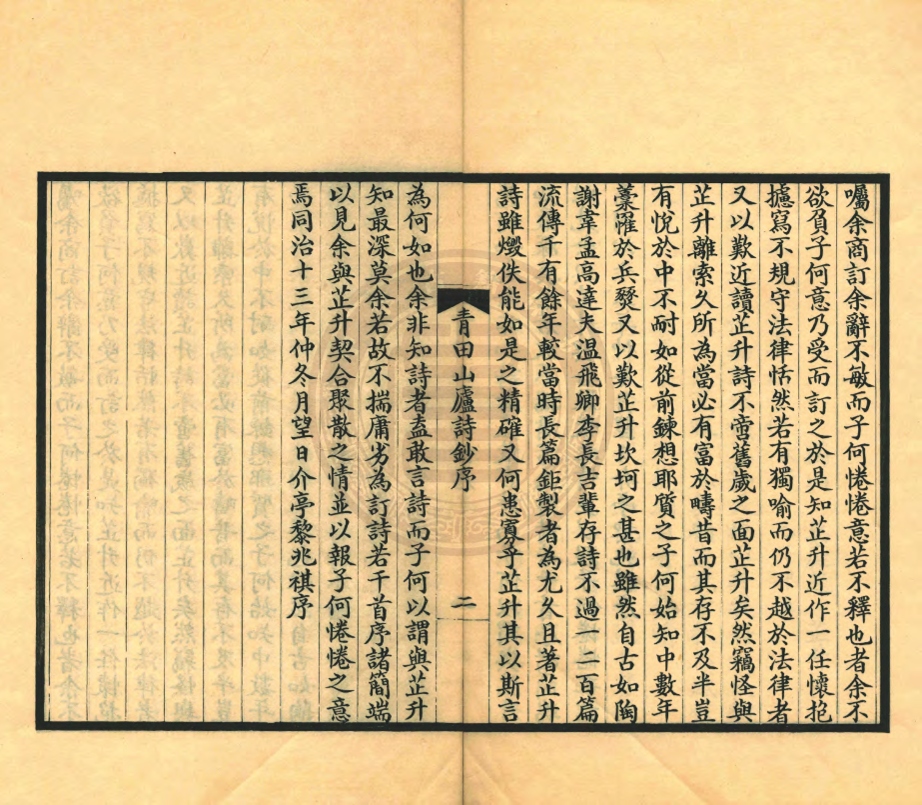 囑余商訂余辭不敏而子何惓惓意若不釋也者余不
欲負子何意乃受而訂之於是知芷升近作一任懷抱
攄寫不規守法律恬然若有獨喻而仍不越於法律者
又以歎近讀芷升詩不啻舊歲之面芷升矣然竊怪與
芷升離索久所為當必有富於疇昔而其存不及半豈
有悅於中不耐如從前鍊想耶質之子何始知中數年
藁罹於兵燹又以歎芷升坎坷之甚也雖然自古如陶
謝韋孟高達夫溫飛卿李長吉輩存詩不過一二百篇
流傳千有餘年較當時長篇鉅製者為尤久且著芷升
詩雖燬佚能如是之精確又何患寡乎芷升其以斯言
青田山廬詩鈔序 二
為何如也余非知詩者盍敢言詩而子何以謂與芷升
知最深莫余若故不揣庸劣為訂詩若干首序諸簡端
以見余與芷升契合聚散之情並以報子何惓惓之意
焉同治十三年仲冬月望日介亭黎兆祺序